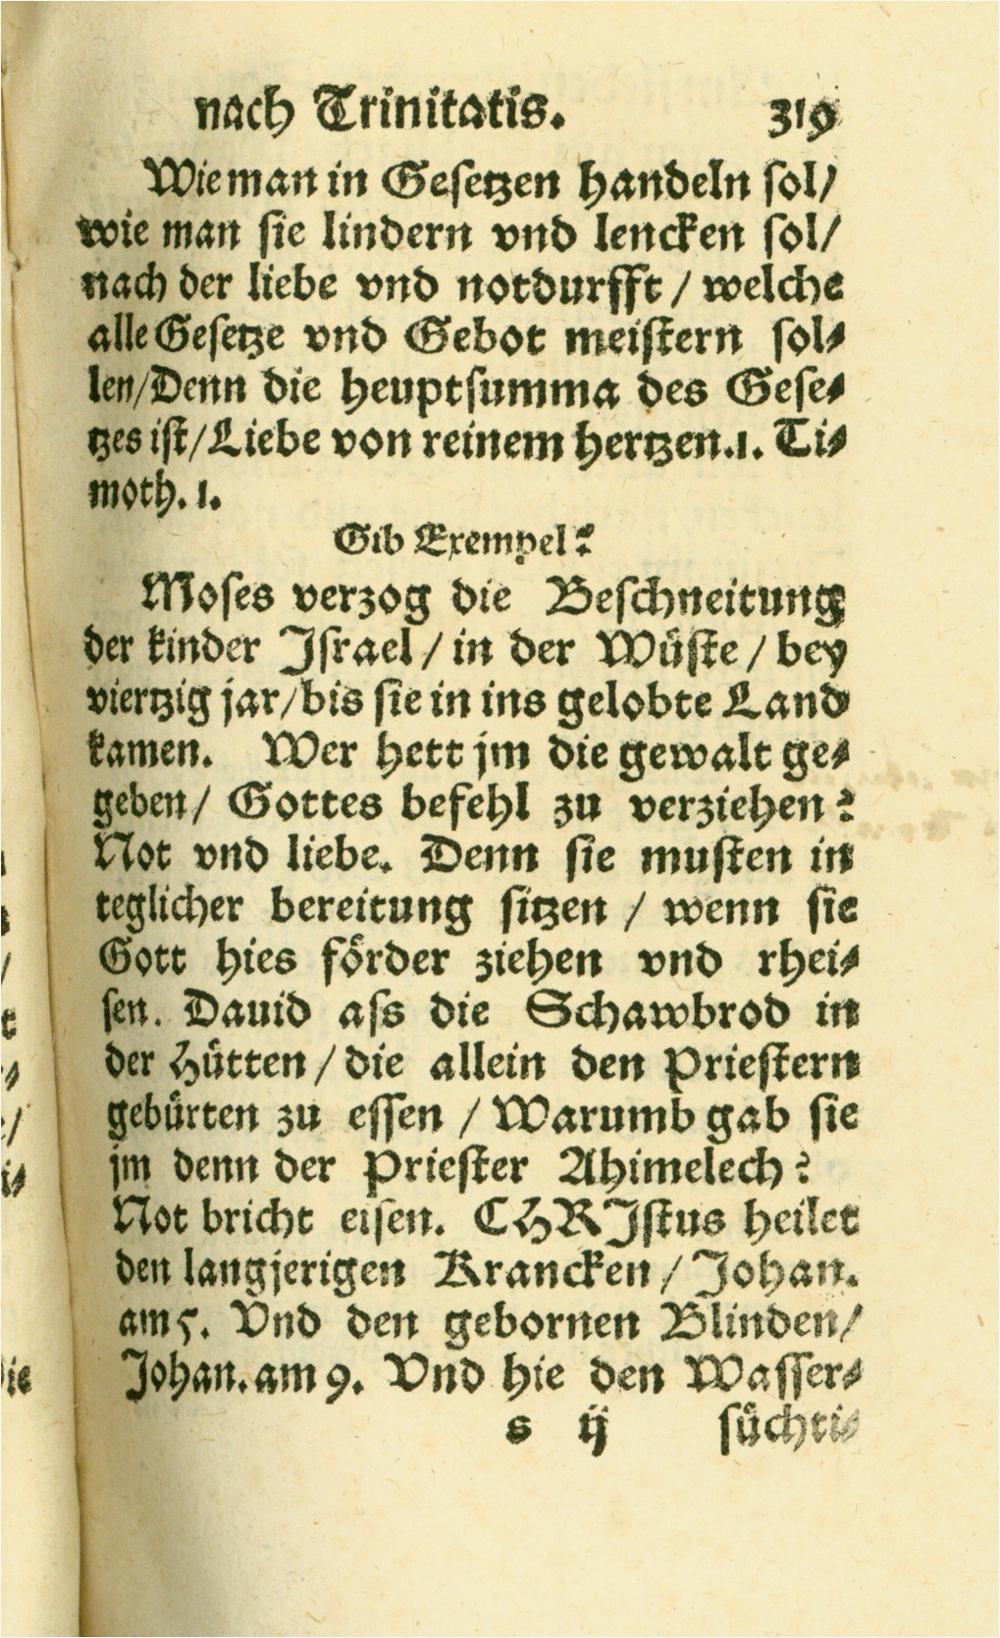 nach Trinitatis. 319
Wie man in Gesetzen handeln sol/
wie man sie lindern vnd lencken sol/
nach der liebe vnd notdurfft / welche
alle Gesetze vnd Gebot meistern sol⸗
len/Denn die heuptsumma des Gese⸗
tzes ist/Liebe von reinem hertzen.1. Ti⸗
moth. 1.
Gib Exempel?
Moses verzog die Beschneitung
der kinder Jsrael / in der Wüste / bey
viertzig jar/bis sie in ins gelobte Land
kamen. Wer hett jm die gewalt ge⸗
geben/ Gottes befehl zu verziehen?
Not vnd liebe. Denn sie musten in
teglicher bereitung sitzen / wenn sie
Gott hies förder ziehen vnd rhei⸗
sen. Dauid ass die Schawbrod in
der Hütten / die allein den Priestern
gebürten zu essen / Warumb gab sie
jm denn der Priester Ahimelech?
Not bricht eisen. CHRJstus heilet
den langjerigen Krancken / Johan.
am 5. Vnd den gebornen Blinden/
Johan. am 9. Vnd hie den Wasser⸗
s ij süchti⸗